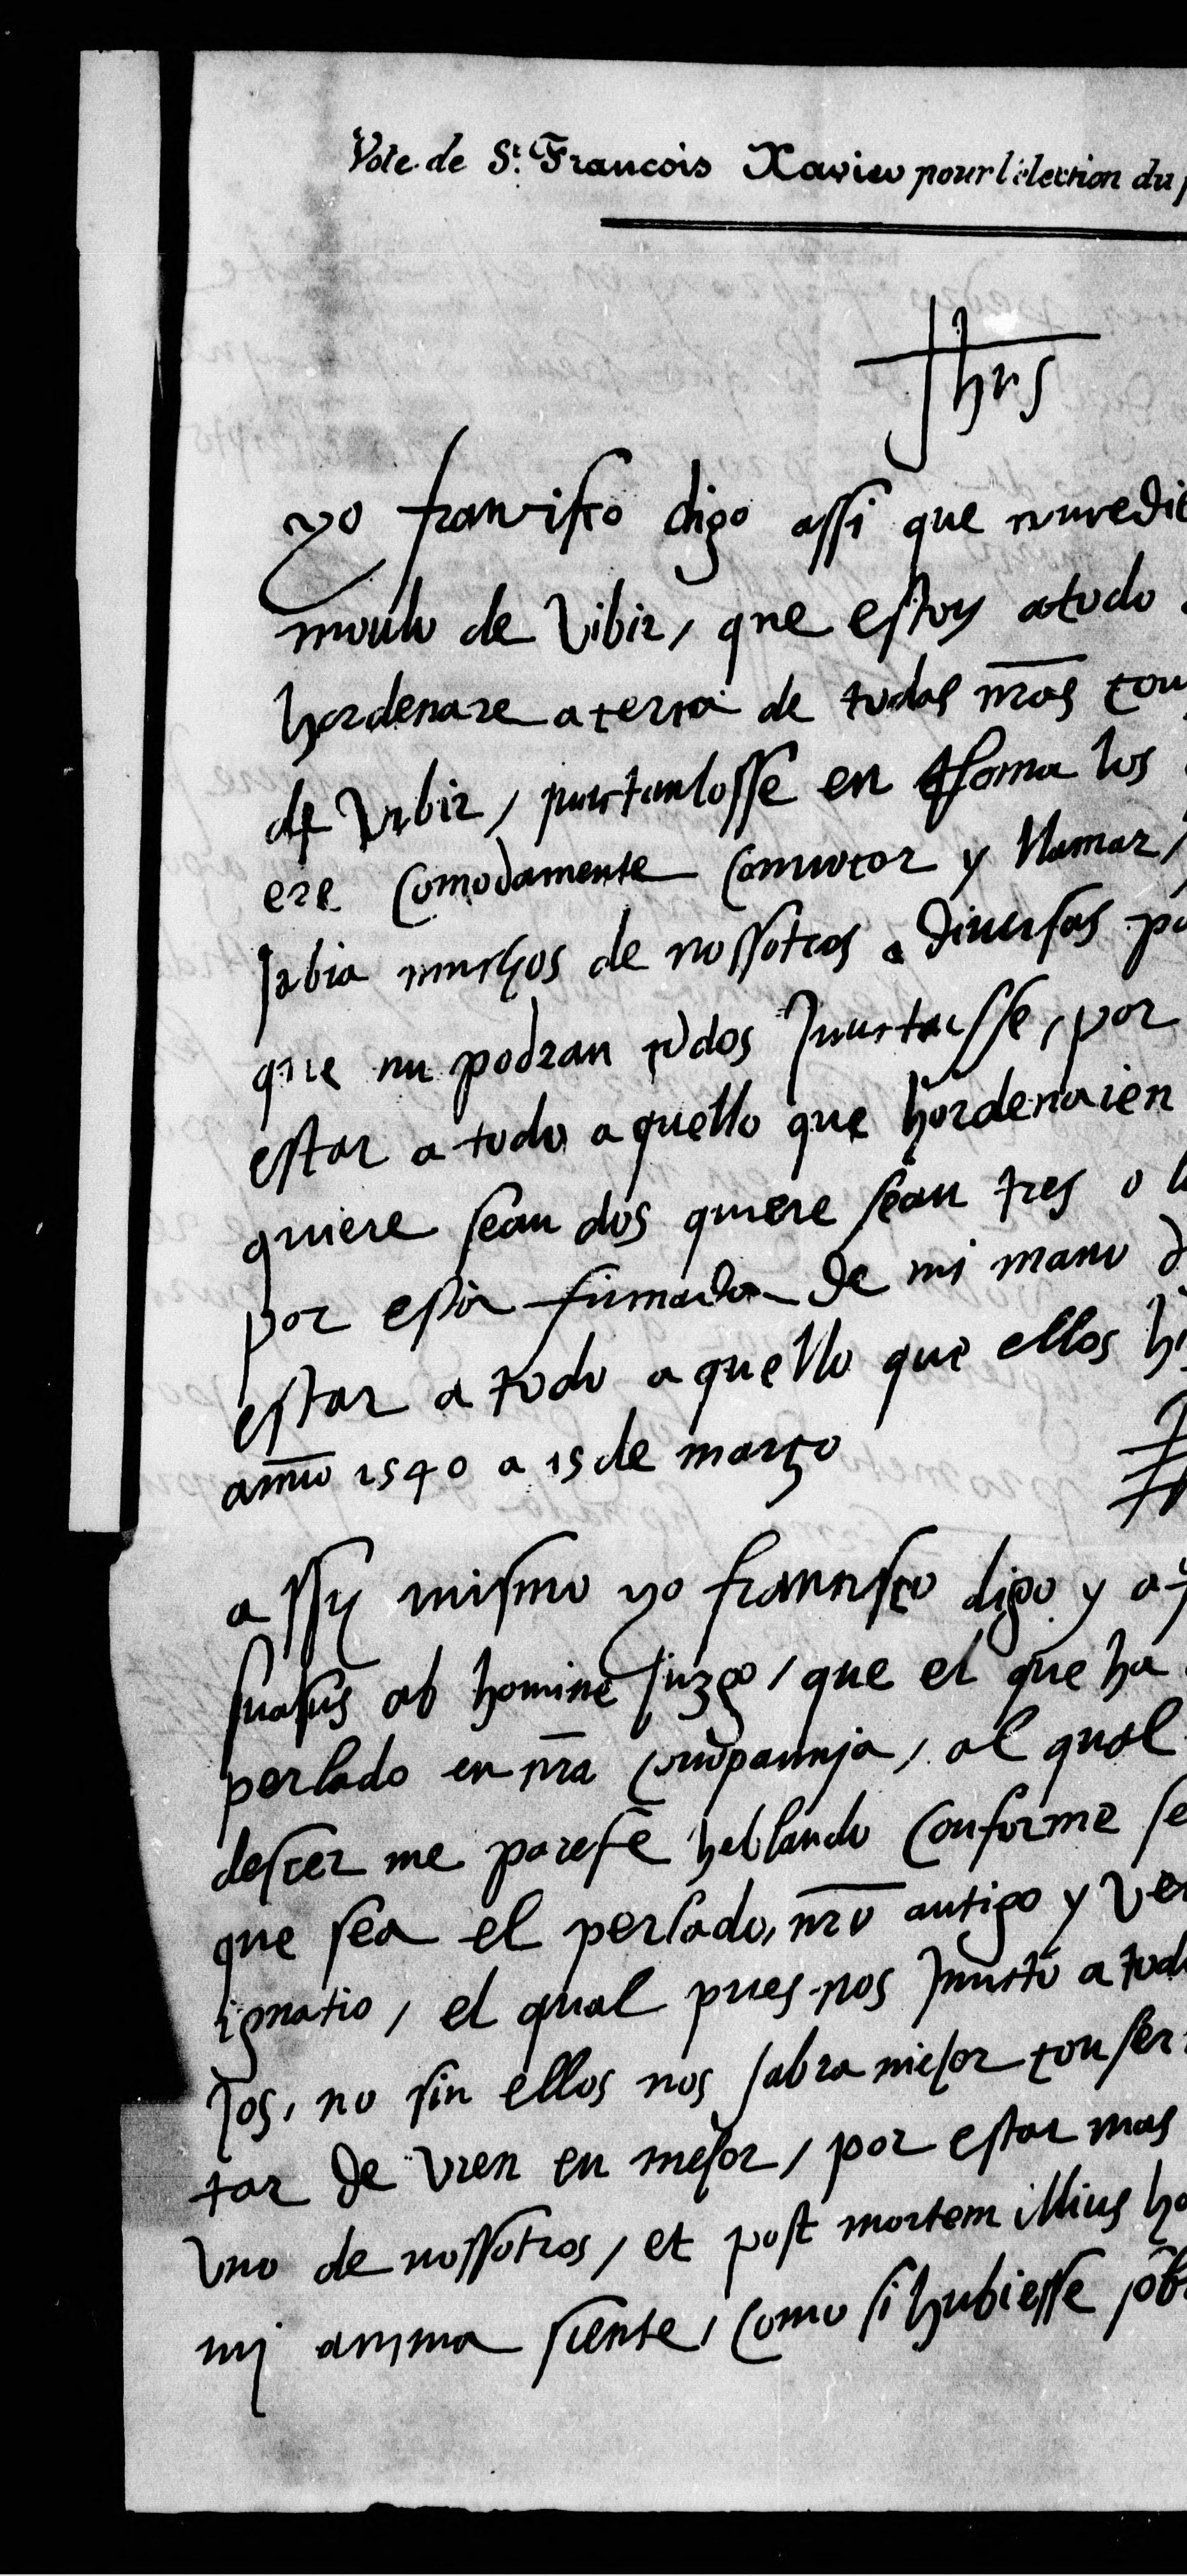 Vote de St. Francois Xavier pour l'élection du
Jhus
yo francisco digo assi que
modo de vibir, que estoy a todo
hordenare acerca de todas nras
de vibir, juntandosse en Roma los
ere comodamente convocar y llamar,
sabia muchos de nossotros a diversas
que no podran todos juntarsse, por
estar a todo aquello que hordenaren
quiere sean dos quiere sean tres o
por esta firmada de mi mano
estar a todo aquello que ellos
anno 1540 a 15 de março
assy mismo yo francisco digo y
suasus ab homine juzgo, que el que ha
perlado en nra conpannja, al qual
descer me parese hablando conforme
que sea el perlado, nro antigo y
ignatio, el qual pues nos junto a
jos, no sin ellos nos sabra mejor
tar de vien en mejor, por estar mas
uno de nossotros, et post mortem illius
mj anyma siente, como si hubiesse